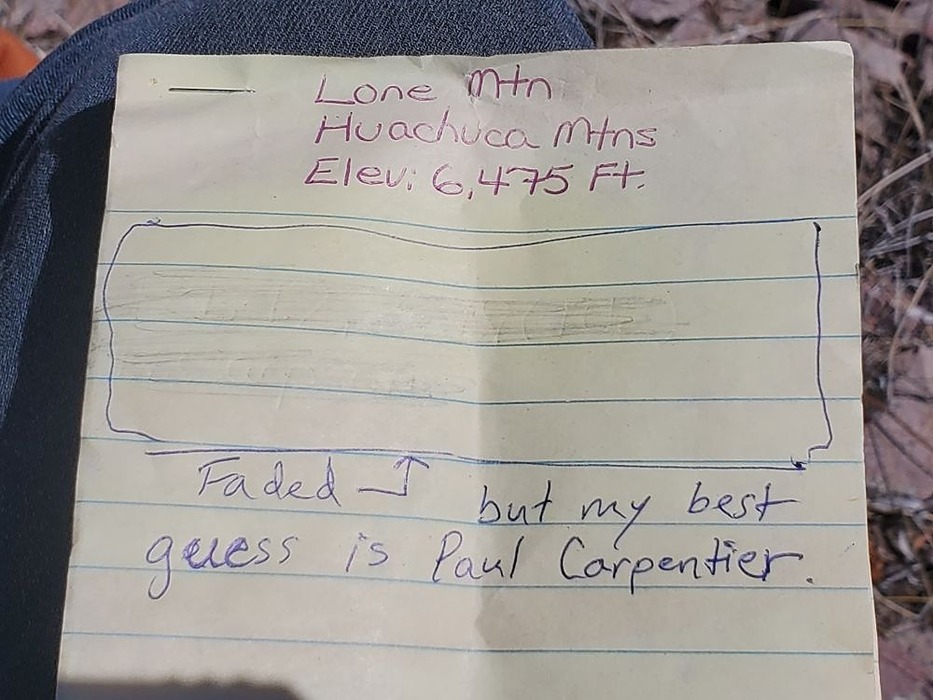 Lone Mtn
Huachuca Mtns
Elev: 6,475 Ft.
Faded but my best
guess is Paul Carpentier.